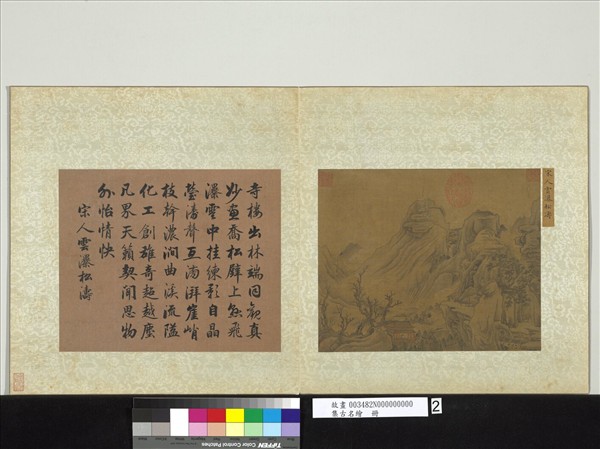 宋人雲瀑松濤
寺樓出林端因觀真
妙畫喬松壁上飛
瀑雲中挂練影自晶
瑩濤聲互湃崖峭
枝幹濃澗曲淡流隘
化工創雄奇超越塵
凡界天籟契聞思物
外怡情快
宋人雲瀑松濤
故畫 003482N000000000
集古名繪 冊
2
TIFFEN Color Control Patches